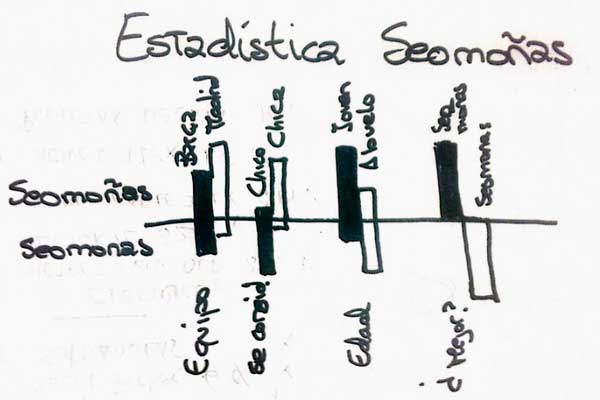 Estadística Seomoñas
Barça
Madrid
Chico
Chica
Joven
Abuelo
Seomoñas
Seomonas
Seomoñas
Seomonas
Equipo
Edad
¿Mejor?